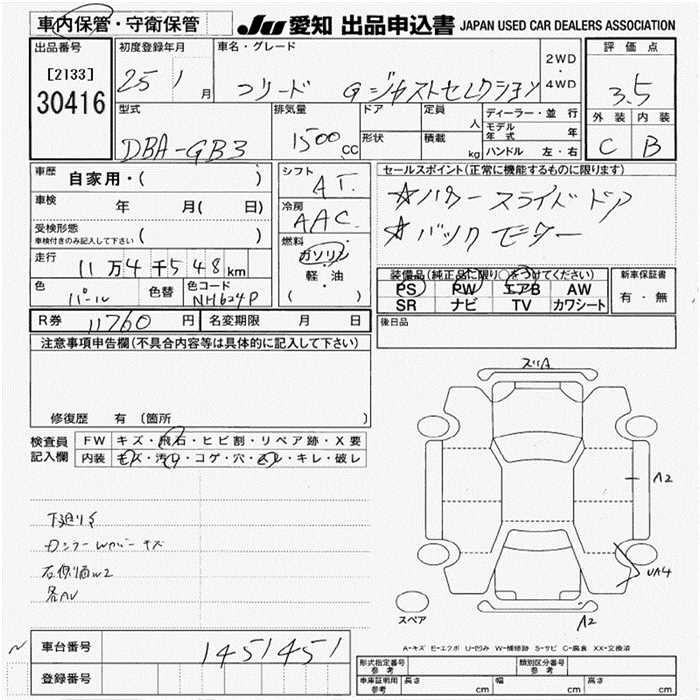 車内保管・守衛保管
JU 愛知 出品申込書 JAPAN USED CAR DEALERS ASSOCIATION
出品番号 初度登録年月 車名・グレード 2WD ・ 4WD 評価点
[2133]
30416
25 1 月 フリード Gジャストセレクション 3.5
型式 排気量 ドア 定員 人 ディーラー・並行 外装 内装
DBA-GB3 1500 CC 形状 積載 kg モデル年式 年 C B
ハンドル 左・右
車歴 自家用・( )
シフト AT.
セールスポイント(正常に機能するものに限ります)
車検 年 月( 日)
冷房 AAC
☆パワースライドドア
☆バックモニター
受検形態 車検付きのみ記入して下さい ( )
燃料 ガソリン 軽・油 ( )
走行 11万4千548km
装備品(純正品に限り○をつけてください) 新車保証書
PS PW エアB AW 有・無
SR ナビ TV カワシート
色 パール 色替 色コード NH624P
R券 11760 円 名変期限 月 日
後日品
注意事項申告欄(不具合内容等は具体的に記入して下さい)
修復歴 有 (箇所 )
検査員記入欄 FW キズ・飛石・ヒビ割・リペア跡・X要
内装 キズ・汚レ・コゲ・穴・スレ・キレ・破レ
スリA
A2
UA4
A2
スペア
下廻りS
右側面W2
A-キズ E-エクボ U-凹み W-補修跡 S-サビ C-腐食 XX-交換済
車台番号 1451451
登録番号
形式指定番号 参考 類別区分番号 参考
車庫証明用 参考 長さ cm 幅 cm 高さ cm